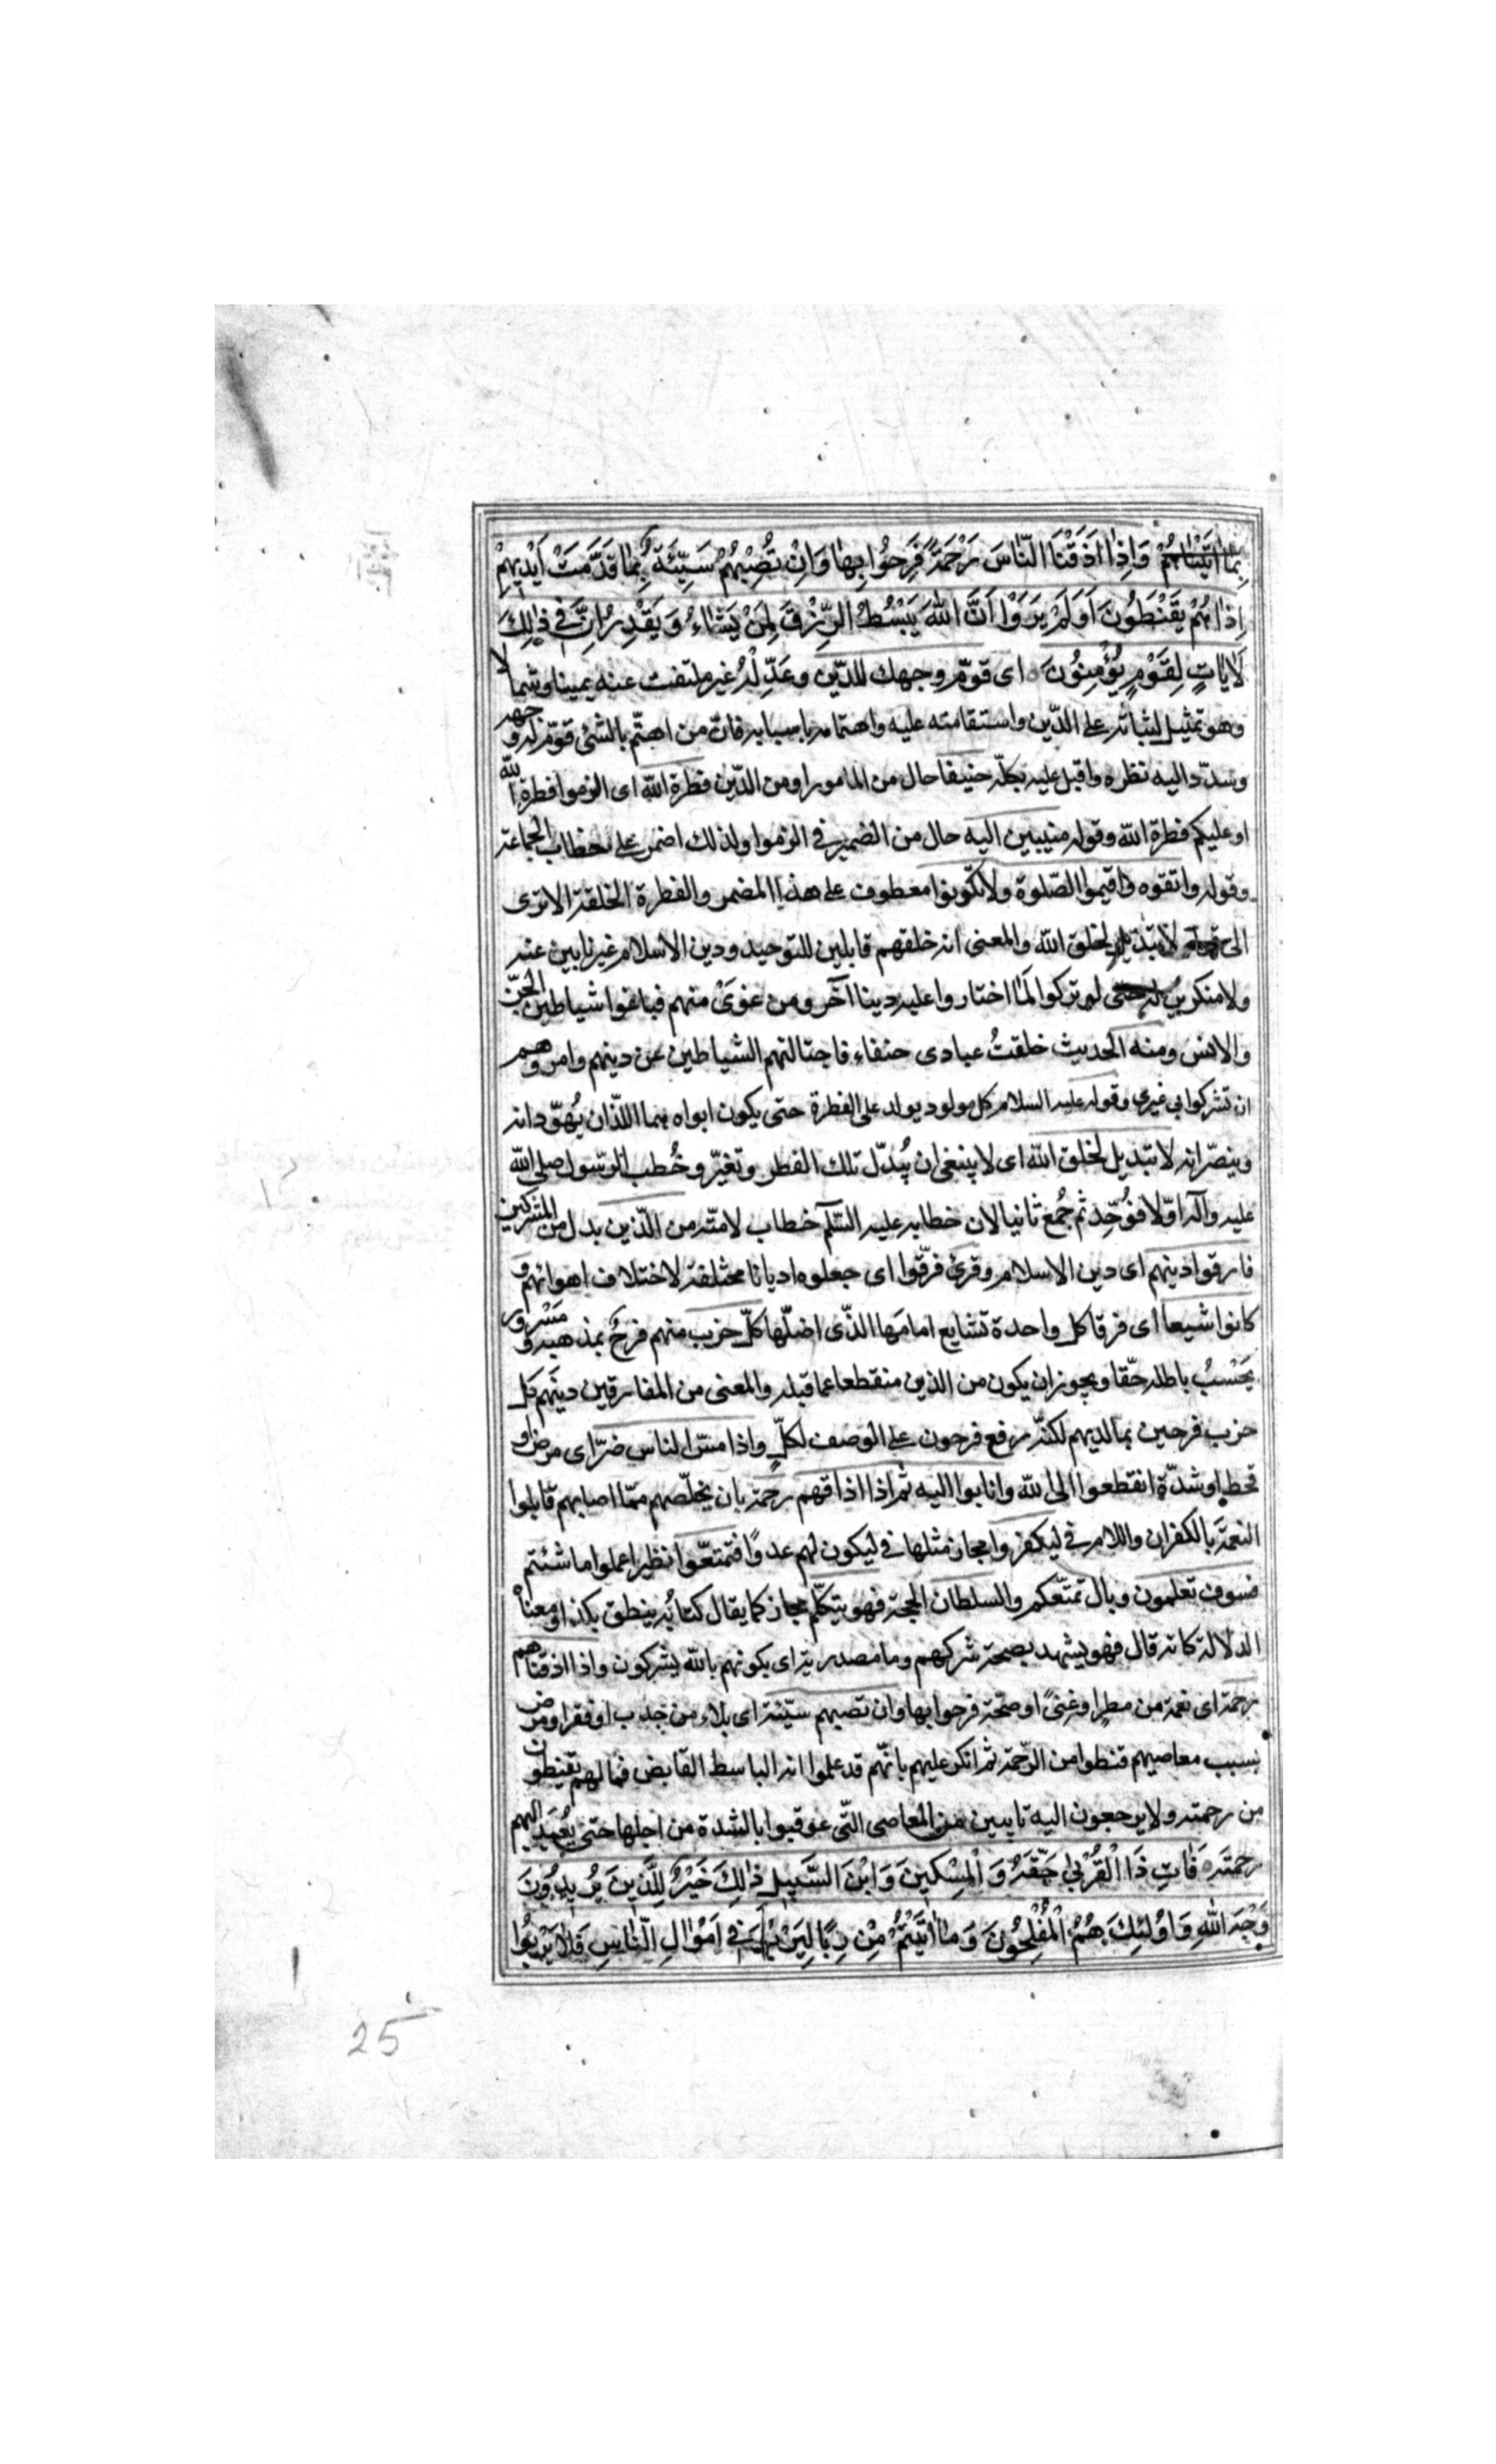 بِمٰا اٰتَيْنٰاهُمْ وَاِذٰا اَذَقْنَا النّٰاسَ رَحْمَةً فَرِحُوا بِهٰا وَاِنْ تُصِبْهُمْ سَيِّئَةٌ بِمٰا قَدَّمَتْ اَيْدِيهِمْ
اِذٰا هُمْ يَقْنَطُونَ اَوَلَمْ يَرَوْا اَنَّ اللّٰهَ يَبْسُطُ الرِّزْقَ لِمَنْ يَشٰاءُ وَيَقْدِرُ اِنَّ فِى ذٰلِكَ
لَاٰيٰاتٍ لِقَوْمٍ يُؤْمِنُونَ ه اى قوّم وجهك للدّين وعَدِّلْهُ غير ملتفت عنه يمينا وشمالا
وهو تمثيل لثباته على الدّين واستقامته عليه واهتمامه باسبابه فانّ من اهتمّ بالشئ قوّم له وجهه
وسدّد اليه نظره واقبل عليه بكلّه حنيفا حال من المامور او من الدّين فطرة اللّه اى الزموا فطرة اللّه
او عليكم فطرة اللّه وقوله منيبين اليه حال من الضمير فى الزموا ولذلك اضمر على خطاب الجماعة
وقوله واتقوه واقيموا الصّلوة ولا تكونوا معطوف على هذا المضمر والفطرة الخلقة الا ترى
الى قوله لا تبديل لخلق اللّه والمعنى انه خلقهم قابلين للتوحيد ودين الاسلام غير نابين عنه
ولا منكرين له حتى لو تركوا لَمٰا اختاروا عليه دينا آخر ومن غَوىٰ منهم فباغوا شياطين الجنّ
والانس ومنه الحديث خلقتُ عبادى حنفاء فاجتالتهم الشياطين عن دينهم وامروهم
ان تشركوا بى غيرى وقوله عليه السلام كل مولود يولد على الفطرة حتى يكون ابواه هما اللّذان يُهوّدانه
وينصّرانه لا تبديل لخلق اللّه اى لا ينبغى ان يُبدّل تلك الفطر وتغيّر وخُطب الرّسول صلى اللّه
عليه وآله اوّلا فوُحِّد ثم جُمع ثانيا لان خطابه عليه السّلم خطاب لامّته من الّذين بدل من المشركين
فارقوا دينهم اى دين الاسلام وقرئ فرّقوا اى جعلوه اديانا مختلفة لاختلاف اهوائهم و
كانوا شيعا اى فرقا كل واحدة تشايع امامَها الذّى اضلّها كلّ حزب منهم فرحٌ بمذهبه ومسرور
يَحْسبُ باطله حقّا ويجوز ان يكون من الذين منقطعا عما قبله والمعنى من المفارقين دينَهم كل
حزب فرحين بما لديهم لكنّه رفع فرحون على الوصف لكلّ واذا مسّ الناس ضرّ اى مرض او
قحط او شدّة انقطعوا الى اللّه وانابوا اليه ثم اذا اذاقهم رحمة بان يخلّصهم ممّا اصابهم قابلوا
النعمَة بالكفران واللام فى ليكفروا مجاز مثلها فى ليكون لهم عدوًّا فتمتعّوا نظير اعملوا ما شئتم
فسوف تعلمون وبال تمتّعكم والسلطان الحجة فهو يتكلّم مجاز كما يقال كتابُه ينطق بكذا ومعناه
الدلالة كانه قال فهو يشهد بصحة شركهم وما مصدرية اى بكونهم باللّه يشركون واذا اذقناهم
رحمة اى نعمة من مطر او غنىً او صحّة فرحوا بها وان تصبهم سيّئة اى بلاء من جدب او فقر او مرض
بسبب معاصيهم قنطوا من الرّحمة ثم انكر عليهم بانّهم قد علموا انه الباسط القابض فمالهم يقنطون
من رحمته ولا يرجعون اليه تايبين من المعاصى التّى عوقبوا بالشدة من اجلها حتى يُعيد اليهم
رحمتَه ه فَاٰتِ ذَا الْقُرْبىٰ حَقَّهُ وَالْمِسْكِينَ وَابْنَ السَّبِيلِ ذٰلِكَ خَيْرٌ لِلَّذِينَ يُرِيدُونَ
وَجْهَ اللّٰهِ وَاُولٰئِكَ هُمُ الْمُفْلِحُونَ وَمٰا اٰتَيْتُمْ مِنْ رِبًا لِيَرْبُوَا فِى اَمْوٰالِ النّٰاسِ فَلٰا يَرْبُوا
25